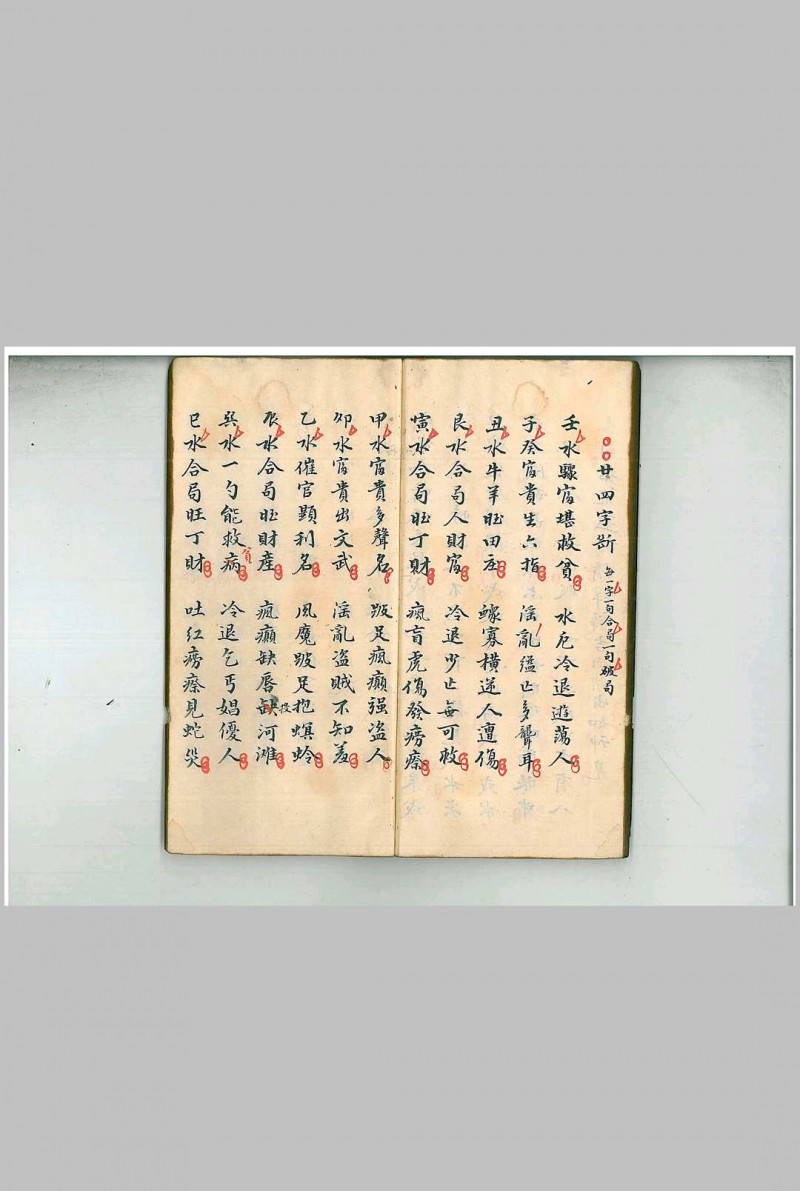 廿四字断 每一字一句合局一句破局
壬水驟富堪救貧 水厄冷退遊蕩人
子癸富貴生六指 淫亂缢亡多聾耳
丑水牛羊旺田庄 鳏寡橫逆人遭傷
艮水合局人財富 冷退少亡每可救
寅水合局旺丁財 瘋盲虎傷發癆瘵
甲水富貴多聲名 跛足瘋癲强盗人
卯水富貴出文武 淫亂盗賊不知羞
乙水催官顯利名 風魔跛足抱螟蛉
辰水合局旺財產 瘋癲缺唇投河滩
巽水一勺能救病貧 冷退乞丐娼優人
巳水合局旺丁財 吐紅癆瘵見蛇災